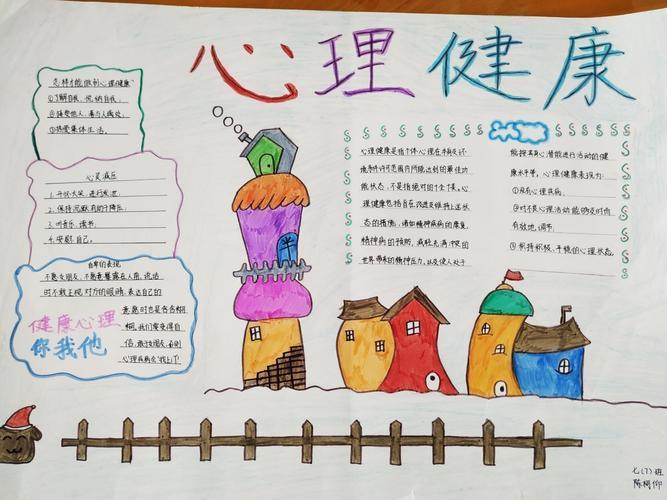 心理健康
怎样才能做到心理健康?
①了解自我、悦纳自我。
②接受他人,善与人相处。
③热爱集体生活。
心灵减压
1. 开怀大笑,进行发泄。
2. 保持沉默有助于降压。
3. 听音乐、读书。
4. 安慰自己。
自卑的表现
不愿交朋友,不愿意暴露在人前,说话
时不敢正视对方的眼睛,表达自己的
意愿时也是吞吞吐吐
健康心理
你我他
心理健康是指个体心理在本身及环
境条件许可范围内所能达到的最佳功
能状态,不是指绝对的十全十美。心理
健康包括旨在改进及保持上述状
态的措施,诸如精神疾病的康复,
精神病的预防,减轻充满冲突的
世界带来的精神压力,以及使人处于
能按其身心潜能进行活动的健
康水平等。心理健康表现为:
①没有心理疾病。
②对不良心理活动能够及时而
有效地调节。
③积极、平稳的心理状态。
七(7)班